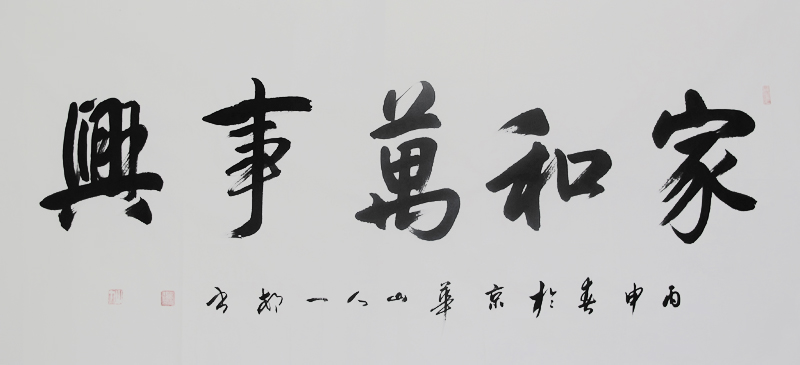 家和萬事興
丙申春於京華山人一郝書